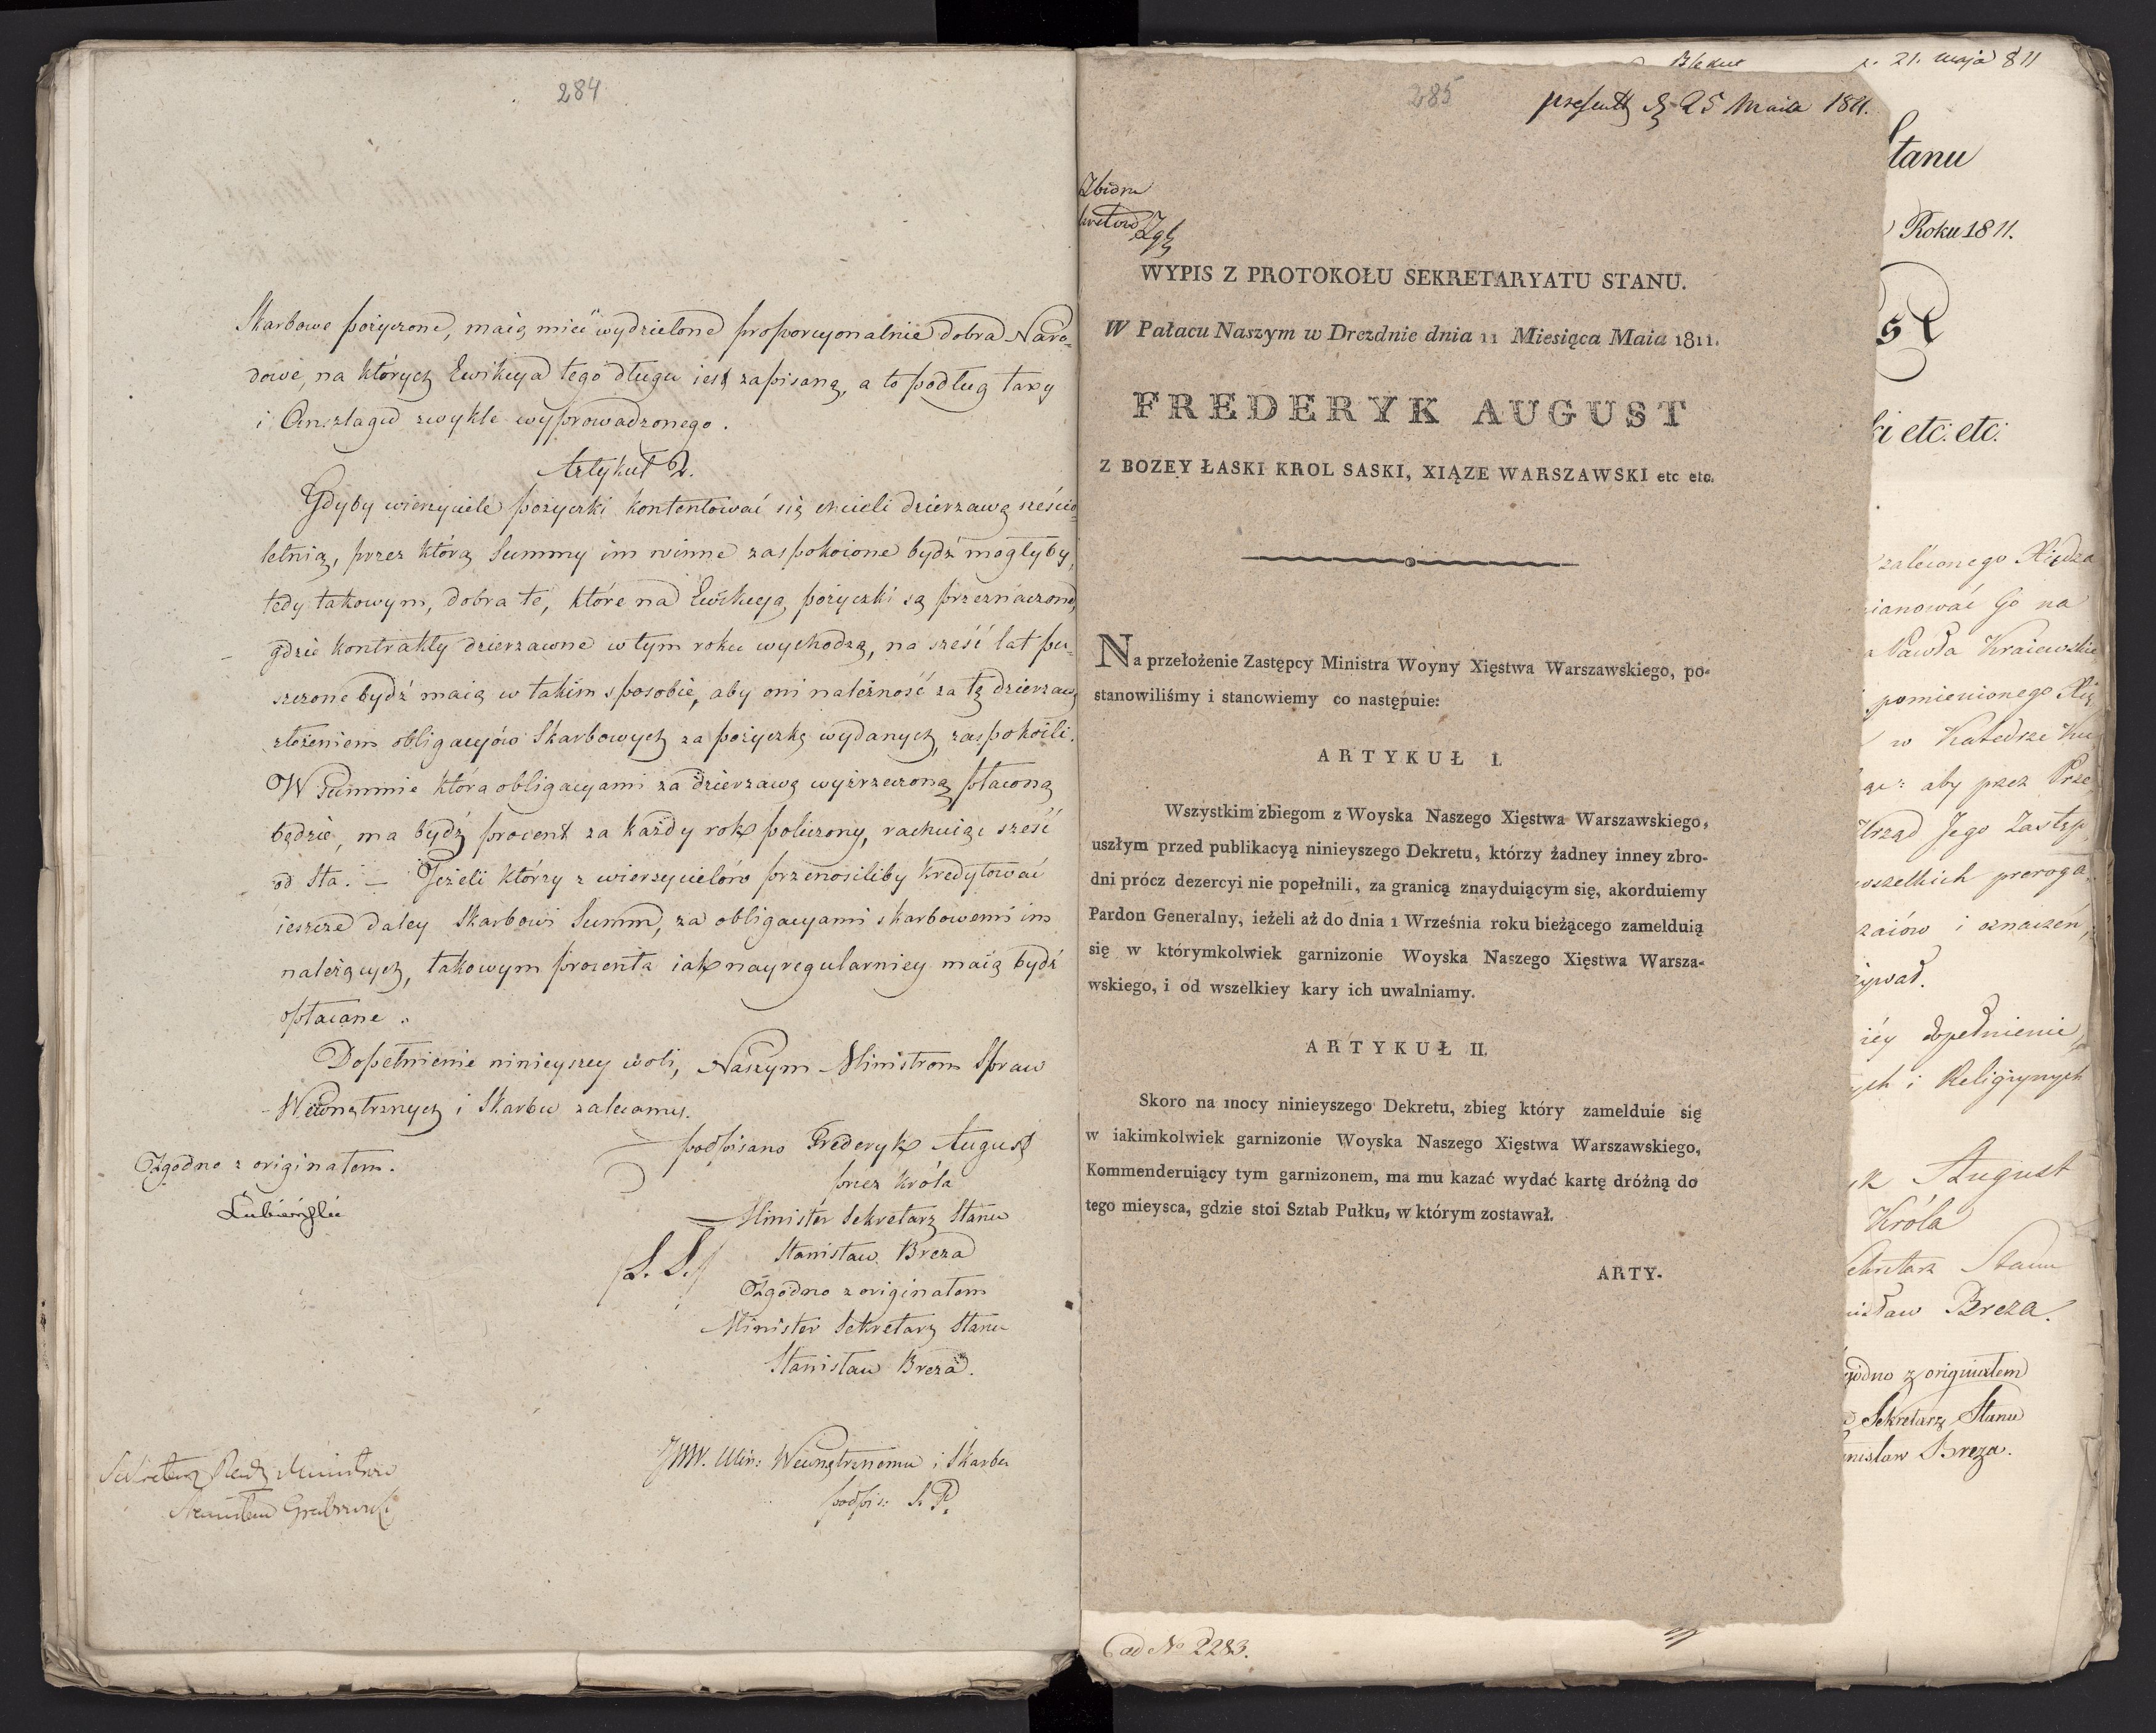 284
Skarbowe pożyczone, maią mieć wydzielone proporcyonalnie dobra Naro-
dowe, na których Ewikcya tego długu iest zapisaną, a to podług taxy
i Anszlagu zwykle wyprowadzonego.
Artykuł 2.
Gdyby wierzyciele pożyczki kontentować się chcieli dzierzawą sześcio-
letnią, przez którą Summy im winne zaspokoione bydź mogłyby,
tedy takowym, dobra te, które na Ewikcyą pożyczki są przeznaczone,
gdzie kontrakty dzierzawne w tym roku wychodzą, na sześć lat pu-
szczone bydź maią w takim sposobie, aby oni należność za tę dzierzawę
złożeniem obligacyów Skarbowych za pożyczkę wydanych, zaspokoili.
W Summie która obligacyami za dzierzawę wyżrzeczoną płaconą
będzie, ma bydź procent za każdy rok policzony, rachuiąc sześć
od Sta. — Jeżeli którzy z wierzycielów przenosiliby kredytować
ieszcze daley Skarbowi Summ, za obligacyami skarbowemi im
należących, takowym procenta iak nayregularniey maią bydź
opłacane.
Dopełnienie ninieyszey woli, Naszym Ministrom Spraw
Wewnętrznych i Skarbu zalecamy.
podpisano Frederyk August
przez Króla
Minister Sekretarz Stanu
(L. S.) Stanisław Breza
Zgodno z originałem
Minister Sekretarz Stanu
Stanisław Breza.
Zgodno z originałem.
Łubieński
JWW. Min: Wewnętrznemu i Skarbu
podpis: S. P.
Sekretarz Rady Ministrów
Stanisław Grabowski
285
present d. 25 Maia 1811.
Zbioru
WYPIS Z PROTOKOŁU SEKRETARYATU STANU.
W Pałacu Naszym w Dreznie dnia 11 Miesiąca Maia 1811.
FREDERYK AUGUST
Z BOZEY ŁASKI KROL SASKI, XIĄZE WARSZAWSKI etc etc.
Na przełożenie Zastępcy Ministra Woyny Xięstwa Warszawskiego, po-
stanowiliśmy i stanowiemy co następuie:
ARTYKUŁ I.
Wszystkim zbiegom z Woyska Naszego Xięstwa Warszawskiego,
uszłym przed publikacyą ninieyszego Dekretu, którzy żadney inney zbro-
dni prócz dezercyi nie popełnili, za granicą znayduiącym się, akorduiemy
Pardon Generalny, ieżeli aż do dnia 1 Września roku bieżącego zamelduią
się w którymkolwiek garnizonie Woyska Naszego Xięstwa Warsza-
wskiego, i od wszelkiey kary ich uwalniamy.
ARTYKUŁ II.
Skoro na mocy ninieyszego Dekretu, zbieg który zamelduie się
w iakimkolwiek garnizonie Woyska Naszego Xięstwa Warszawskiego,
Kommenderuiący tym garnizonem, ma mu kazać wydać kartę dróżną do
tego mieysca, gdzie stoi Sztab Pułku, w którym zostawał.
ARTY-
ad No 2283.
21. maja 811
Stanu
Roku 1811.
ki etc: etc:
zaleconego Xiędza
mianować Go na
Pawła Kraiewskie
pomienionego Xię
w Katedrze Ku
aby przez Prze
Urząd Jego Zastęp
wszelkich preroga
i oznaczeń,
dopełnienie
i Religiynych
August
Króla
Sekretarz Stanu
nisław Breza.
godno z originałem
Sekretarz Stanu
nisław Breza.